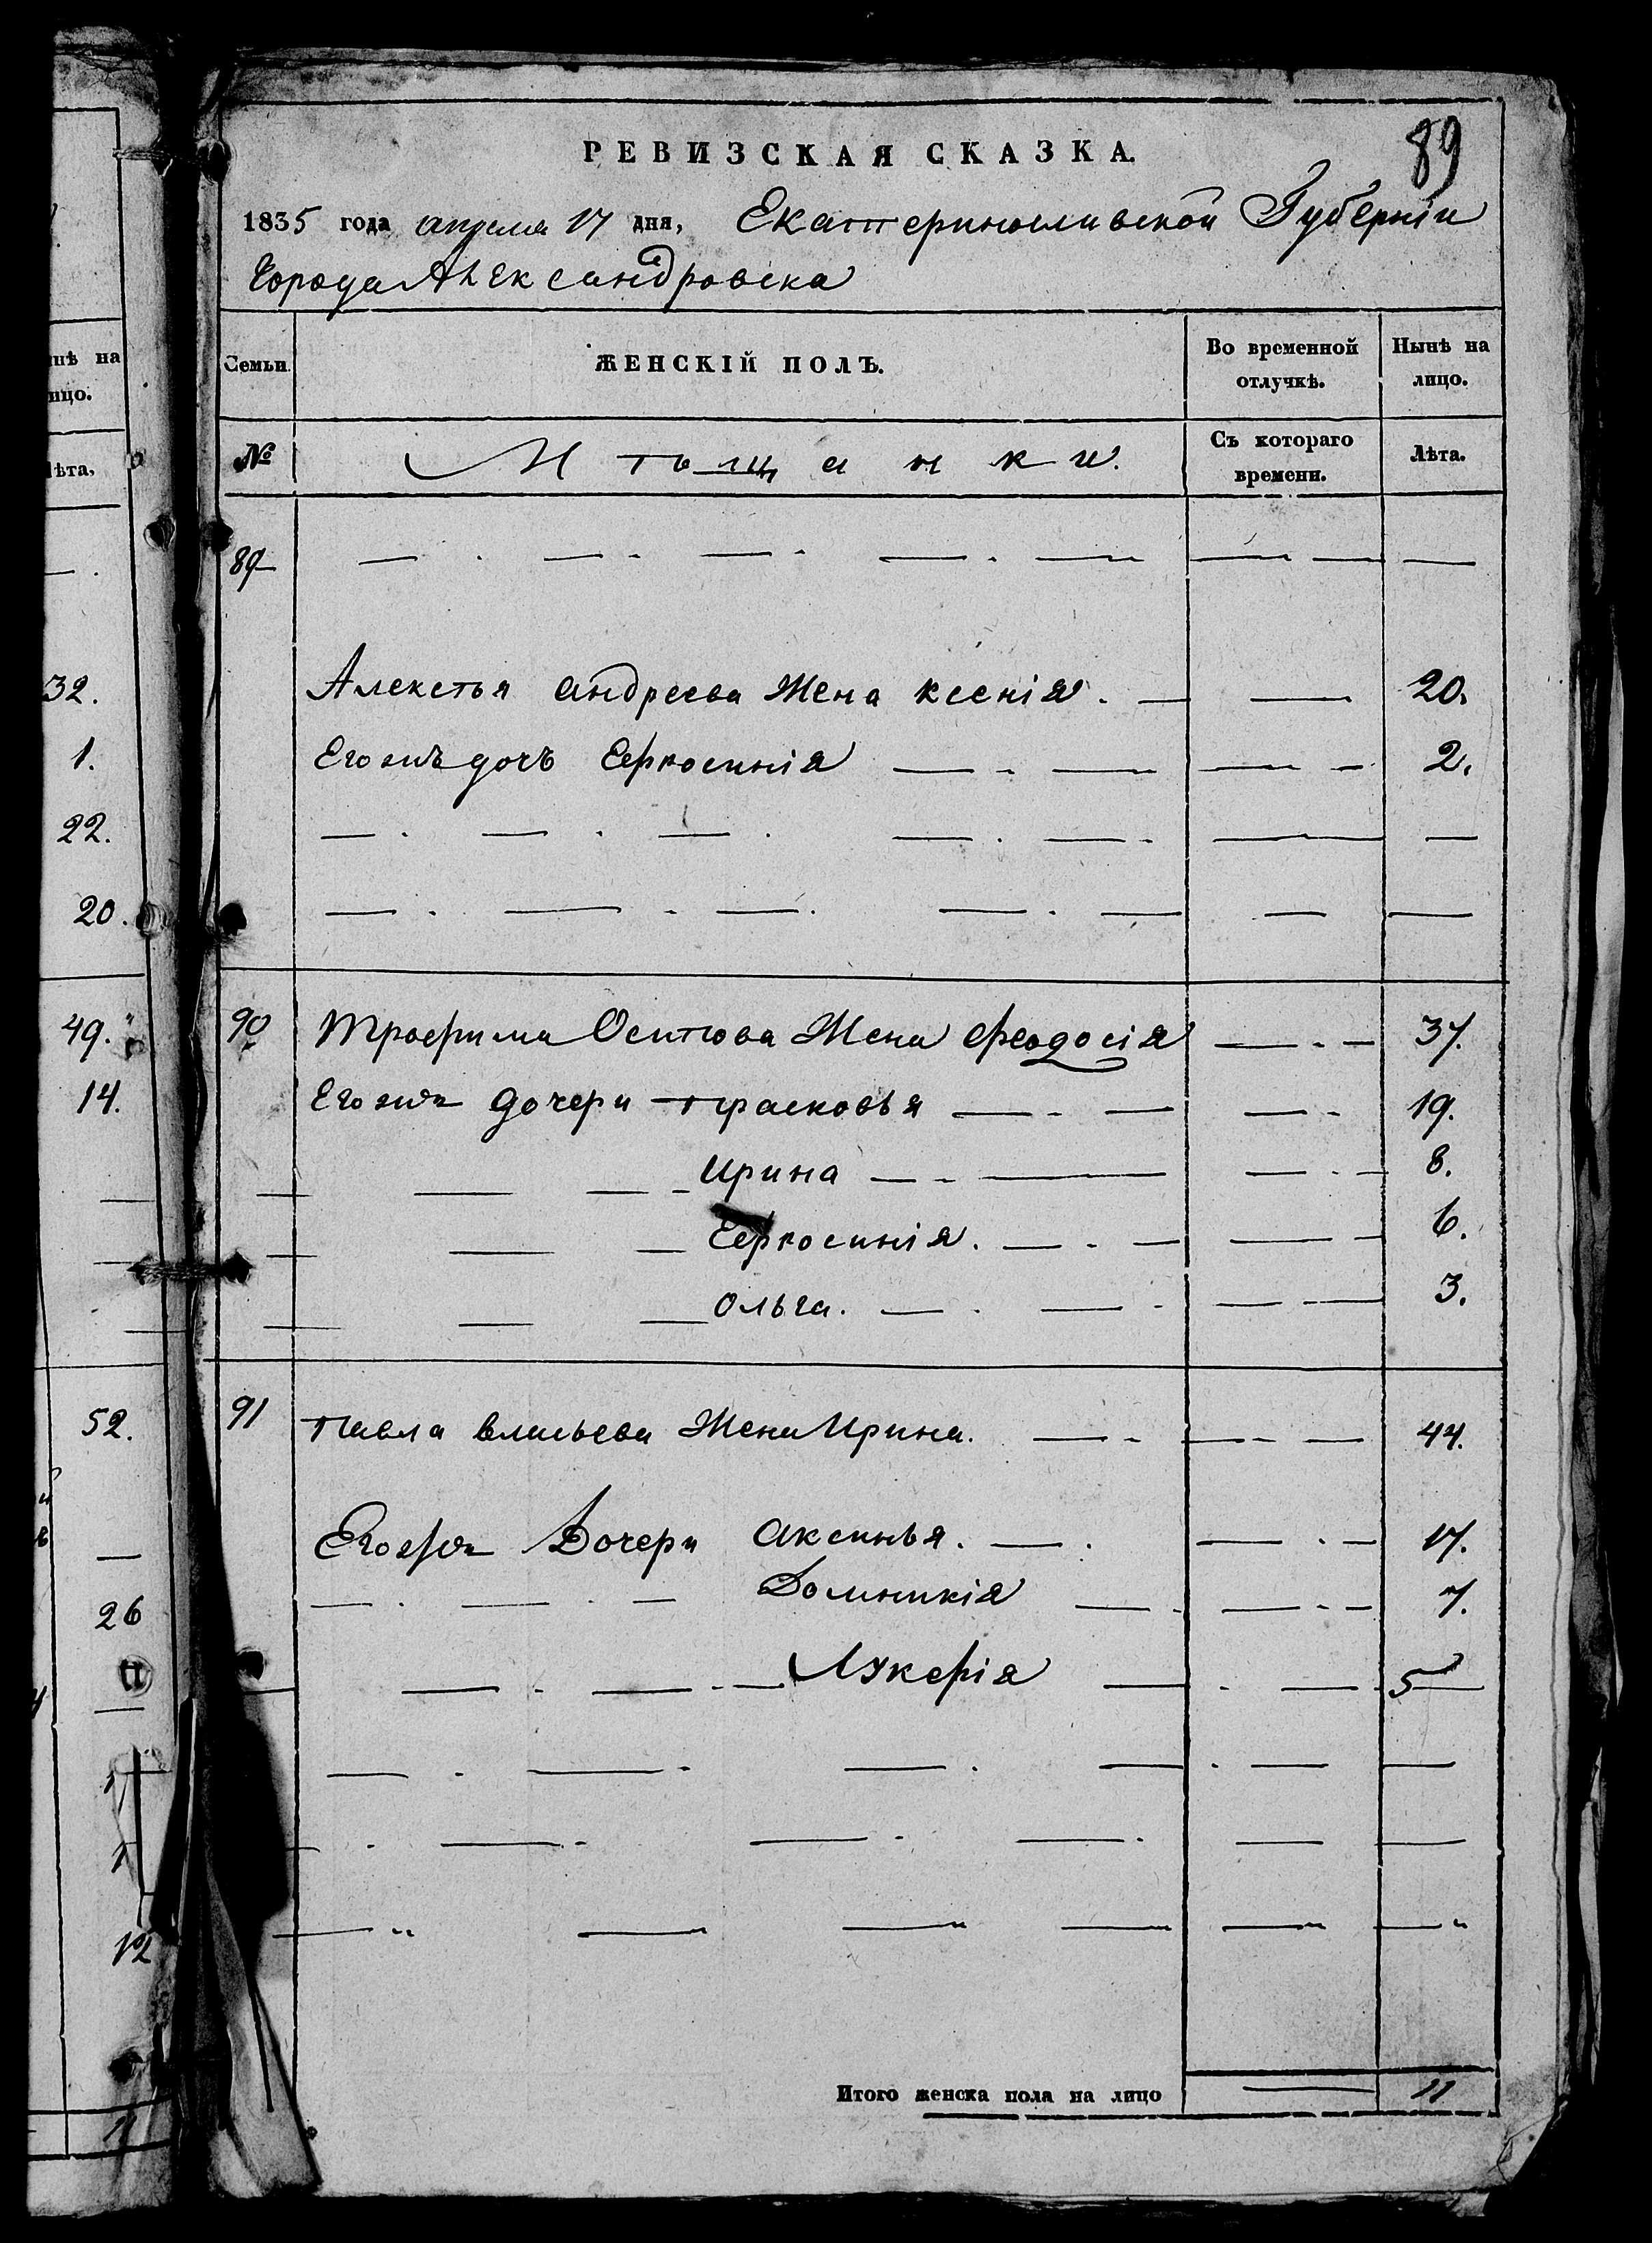 89
РЕВИЗСКАЯ СКАЗКА.
1835 года апреля 17 дня, Екатеринославской Губернiи
Города Александровска
Семьи. ЖЕНСКIЙ ПОЛЪ. Во временной отлучкѣ. Нынѣ на лицо.
№ Мѣщанки. Съ котораго времени. Лѣта.
89
Алексѣя Андреева Жена Ксенiя. 20.
Его жъ дочь Ефросинiя 2.
90 Трофима Осипова Жена Феодосiя 37.
Его же дочери Прасковья 19.
Ирина 8.
Ефросинiя. 6.
Ольга. 3.
91 Павла Власьева Жена Ирина. 44.
Его же Дочери Аксинья. 17.
Домникiя 7.
Лукерiя 5
Итого женска пола на лицо 11
нѣ на
ицо.
ѣта,
32.
1.
22.
20.
49.
14.
52.
26
1
1
12
11